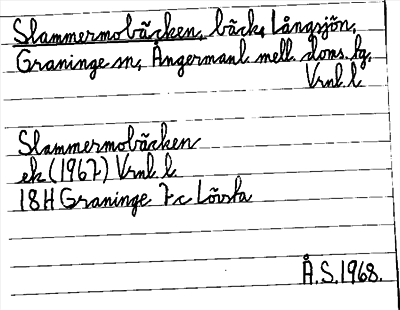 Slammermobäcken, bäck, Långsjön,
Graninge sn, Ångermanl. mell. doms. hg.
Vrnl. l
Slammermobäcken
ek (1967) Vrnl. l
18H Graninge 7c Lövsta
Å.S. 1968.